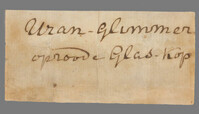 Uran-Glimmer
op roode Glas-kop